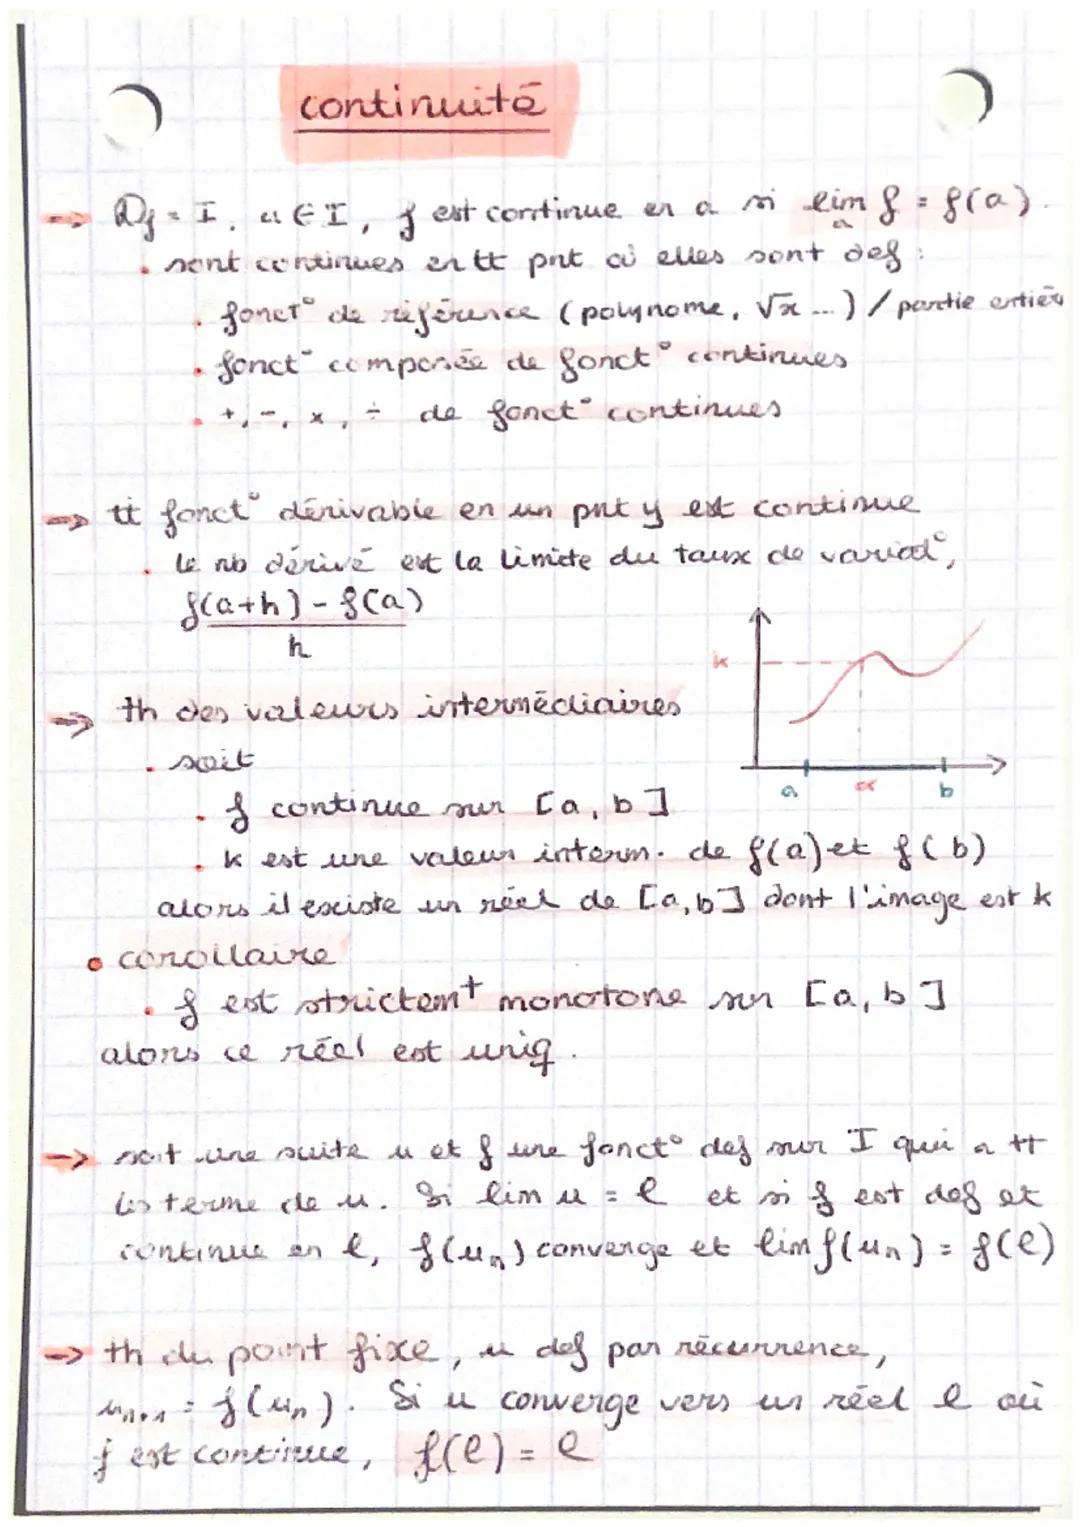 continuité
→ Df = I, a ∈ I, f est continue en a si lim f = f(a).
a
. sont continues en tt pnt où elles sont def :
. fonct° de référence (polynome, √x ...) / partie entière
. fonct° composée de fonct° continues
. +, -, x, ÷ de fonct° continues
→ tt fonct° dérivable en un pnt y est continue
. le nb dérivé est la limite du taux de variat°,
f(a+h) - f(a)
h
k
→ th des valeurs intermédiaires
. soit
a α b
. f continue sur [a, b]
. k est une valeur interm. de f(a) et f(b)
alors il existe un réel de [a,b] dont l'image est k
• corollaire
. f est strictemt monotone sur [a, b]
alors ce réel est uniq.
→ soit une suite u et f une fonct° def sur I qui a tt
les terme de u. Si lim u = l et si f est def et
continue en l, f(un) converge et lim f(un) = f(l)
→ th du point fixe, u def par récurrence,
un+1 = f(un). Si u converge vers un réel l où
f est continue, f(l) = l